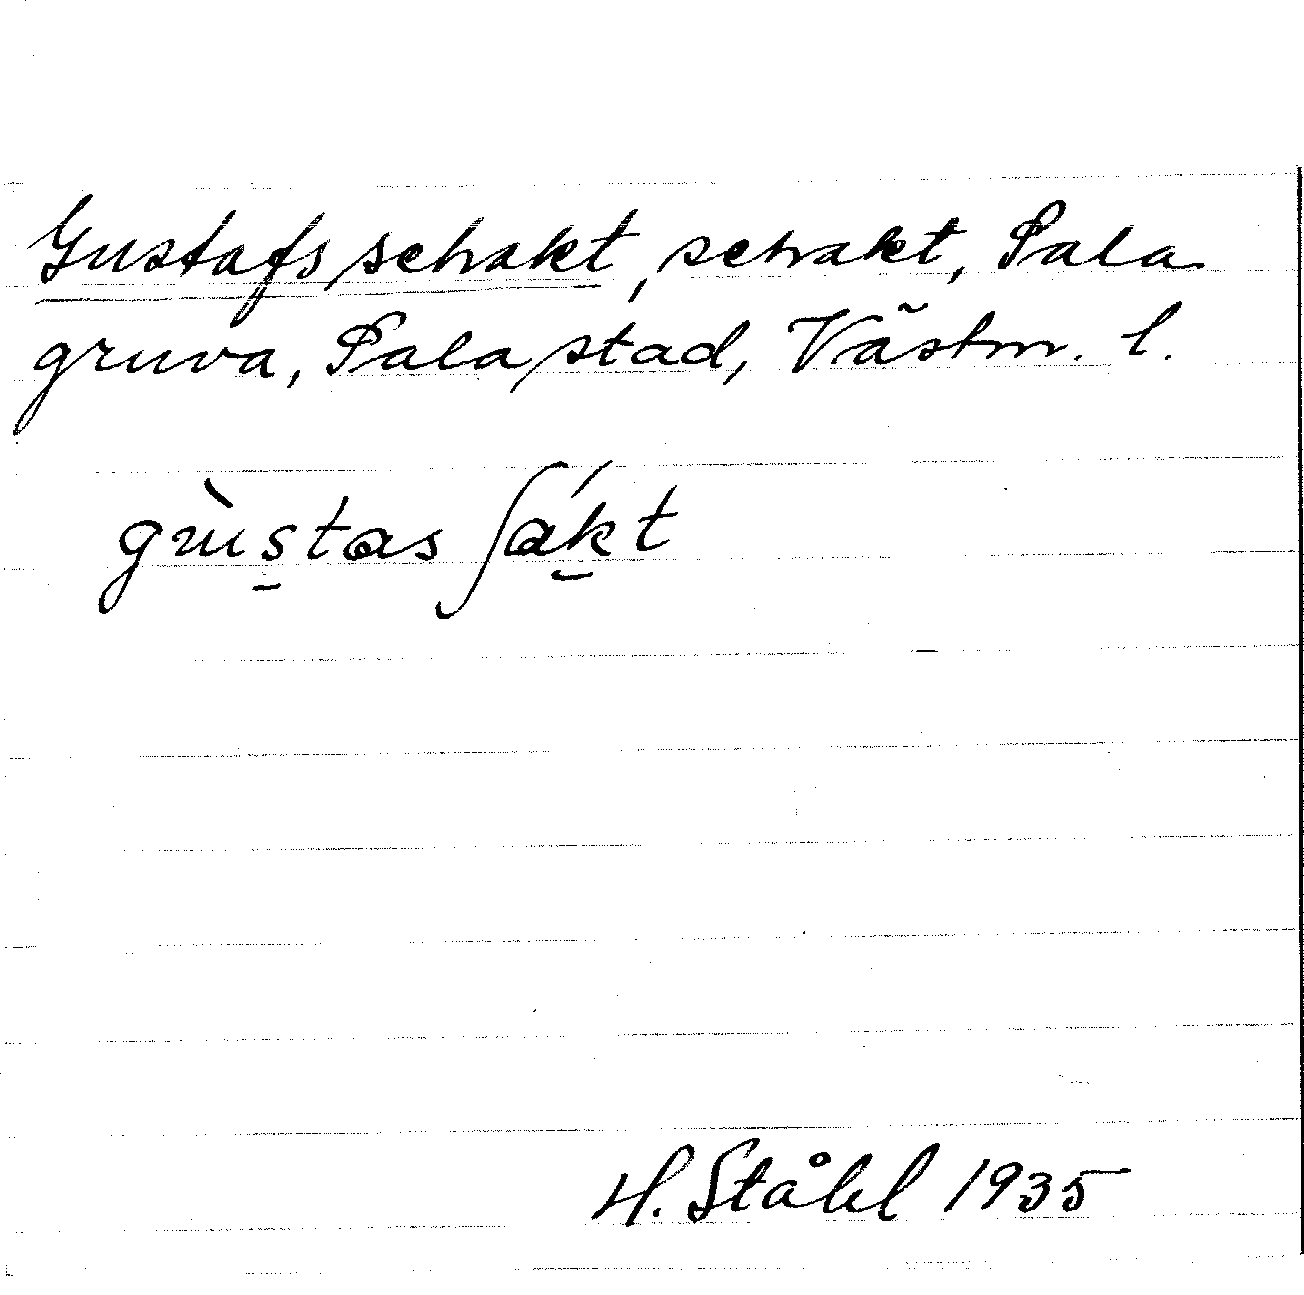 Gustafs schakt, schakt, Sala
gruva, Sala stad, Västm. l.
gùs̱tas ʃáḵt
H. Ståhl 1935